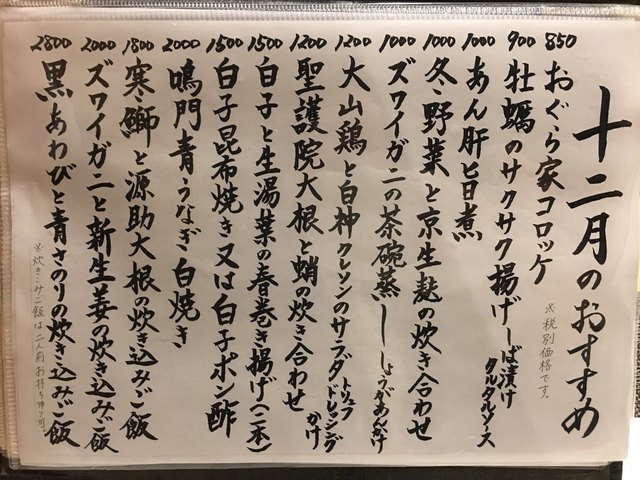 十二月のおすすめ
※税別価格です。
850 おぐら家コロッケ
900 牡蠣のサクサク揚げ しば漬けタルタルソース
1000 あん肝旨煮
1000 冬野菜と京生麩の炊き合わせ
1000 ズワイガニの茶碗蒸し しょうがあんかけ
1200 大山鶏と白神クレソンのサラダ トリュフドレッシングかけ
1200 聖護院大根と蛸の炊き合わせ
1500 白子と生湯葉の春巻き揚げ(二本)
1500 白子昆布焼き又は白子ポン酢
2000 鳴門青うなぎ白焼き
1800 寒鰤と源助大根の炊き込みご飯
2000 ズワイガニと新生姜の炊き込みご飯
2800 黒あわびと青さのりの炊き込みご飯
※炊きこみご飯は二人前お持ち帰り可